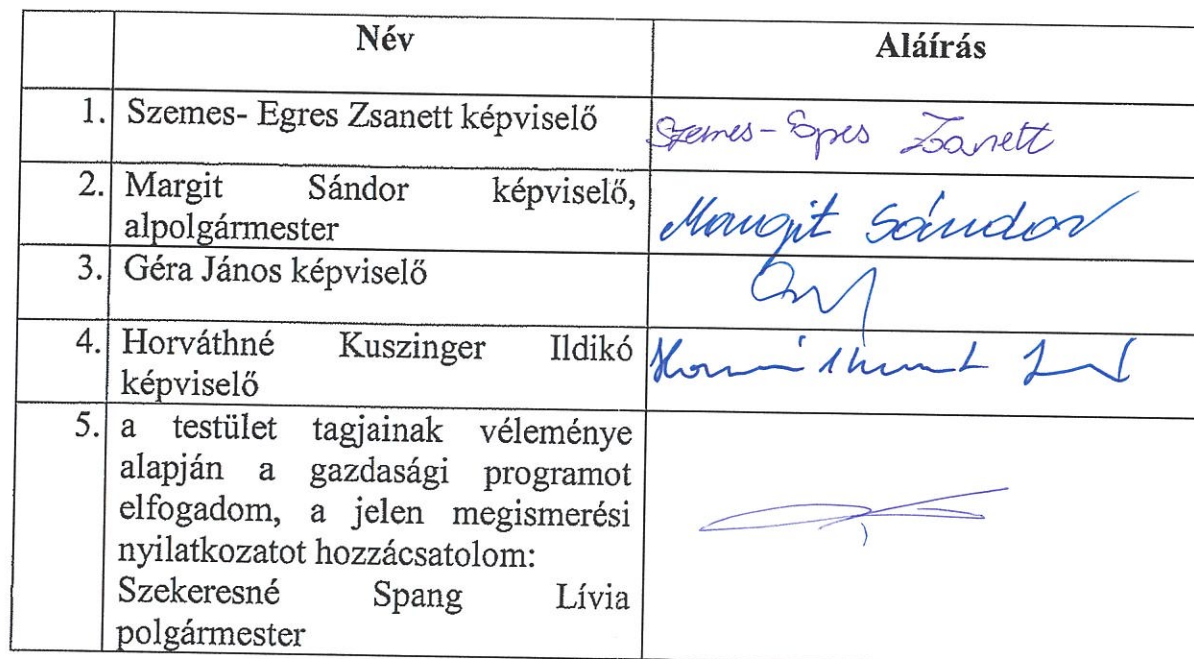 Név Aláírás
1. Szemes- Egres Zsanett képviselő Szemes-Egres Zsanett
2. Margit Sándor képviselő, Margit Sándor
alpolgármester
3. Géra János képviselő
4. Horváthné Kuszinger Ildikó
képviselő
5. a testület tagjainak véleménye
alapján a gazdasági programot
elfogadom, a jelen megismerési
nyilatkozatot hozzácsatolom:
Szekeresné Spang Lívia
polgármester